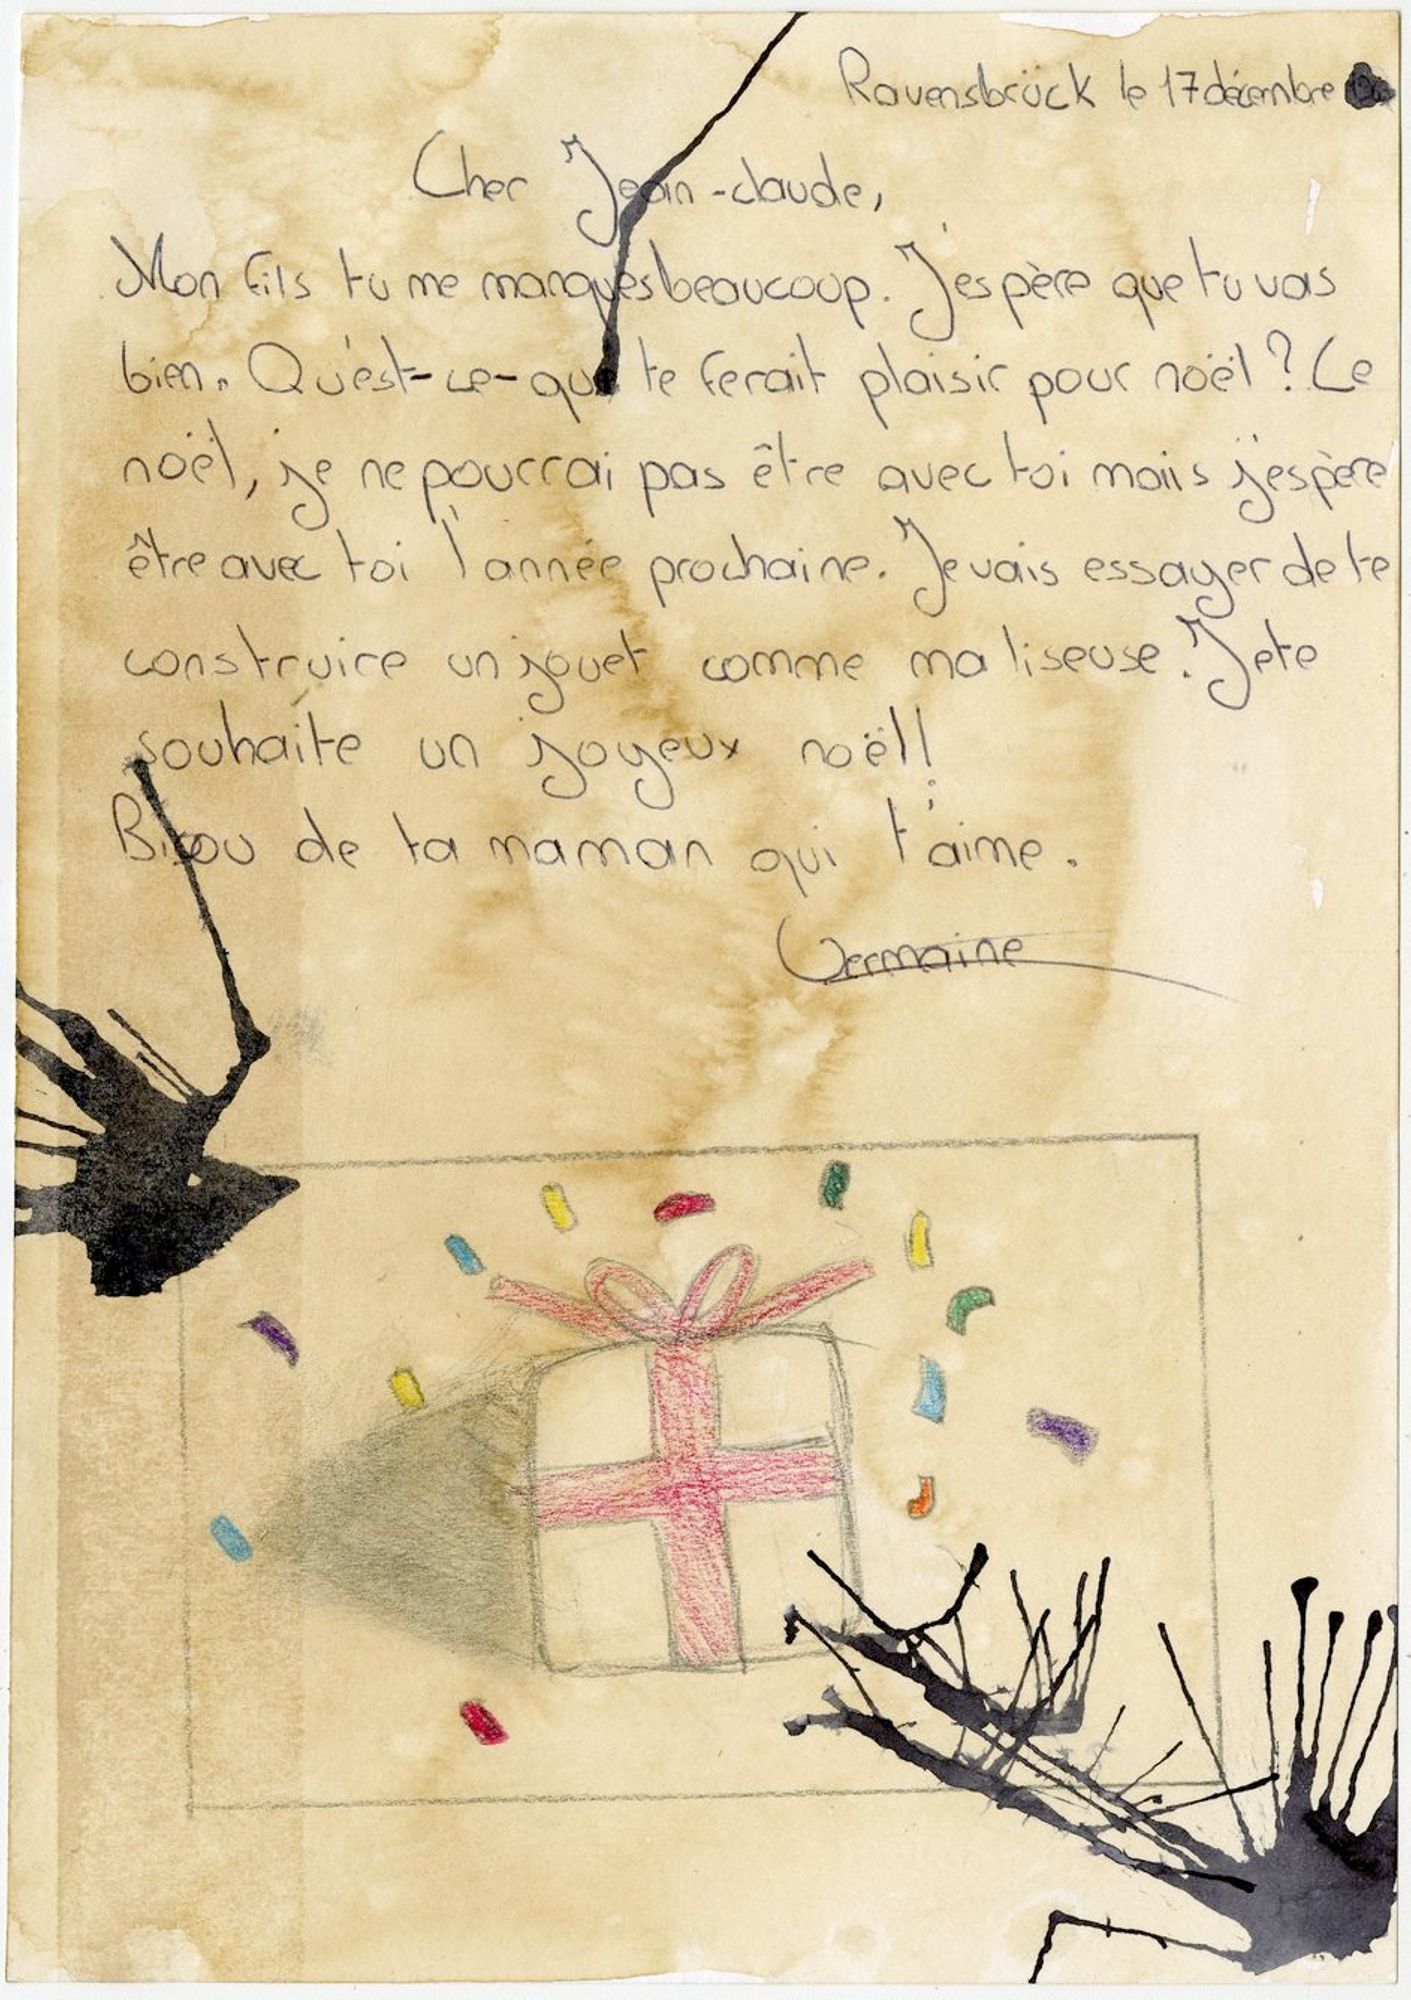 Ravensbrück le 17 décembre
Cher Jean-claude,
Mon fils tu me manques beaucoup. J'espère que tu vas
bien. Qu'est-ce-que te ferait plaisir pour noël ? Ce
noël, je ne pourrai pas être avec toi maiis j'espère
être avec toi l'année prochaine. Je vais essayer de te
construire un jouet comme ma liseuse. Je te
souhaite un joyeux noël!
Bisou de ta maman qui t'aime.
Germaine